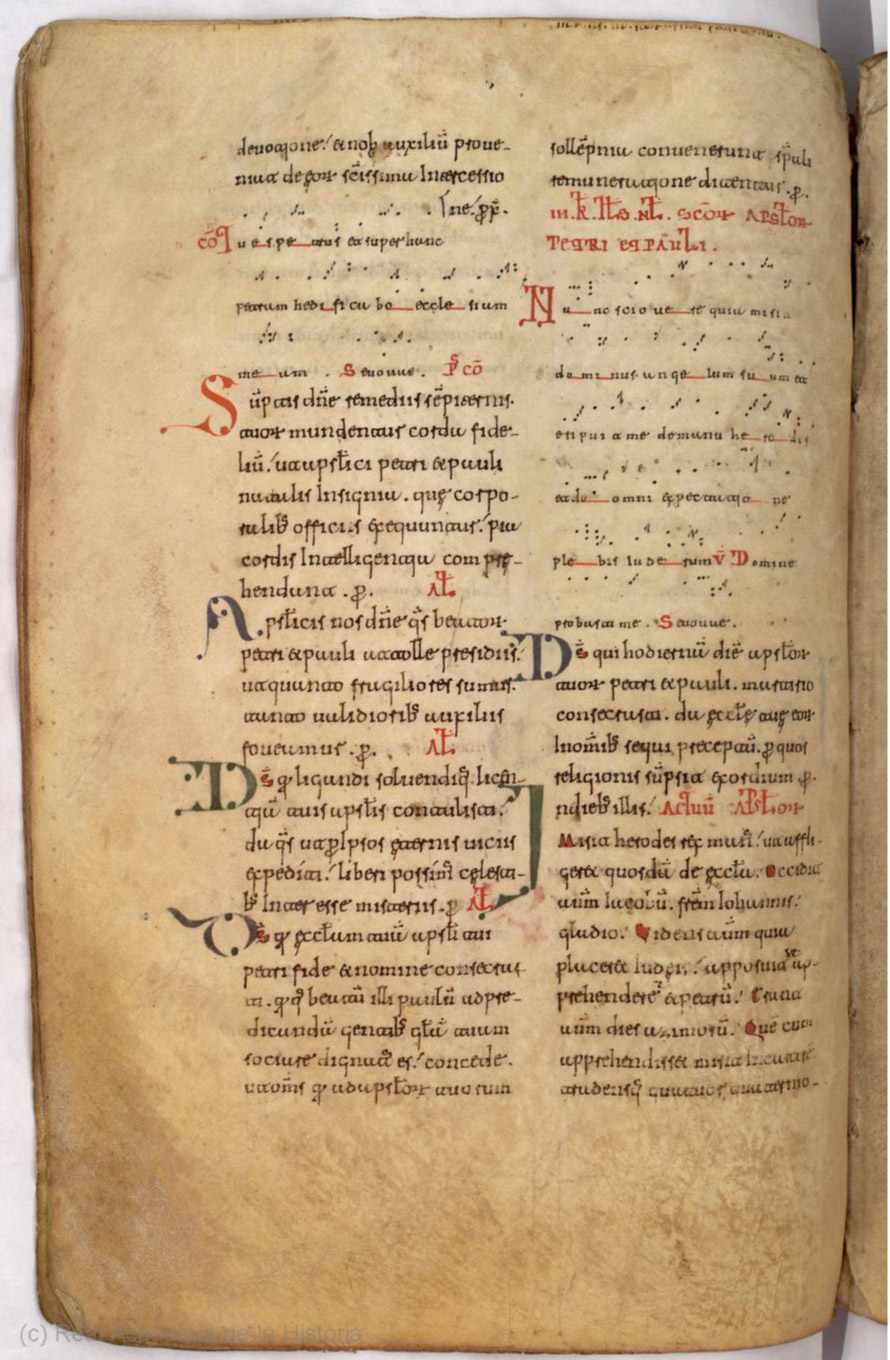 deuotione / & nob auxiliū proue-
niat deꝑcor sc̄issima Intercessio
/ ne. ꝓp̄.
cōꝯ
tu es petrus et super hanc
petram hedificabo ecclesiam
meam . Seuouae . P̄ cō
Sūptis dn̄e remediis sēpiternis.
tuor mundentur corda fide-
liū / ut apostl̄ici petri & pauli
natalis Insignia . quę corpo-
ralib officiis exequuntur / pia
cordis Intelligentia compre-
hendant . ꝓ. AŁ
Apstlicis nos dn̄e q̄s beator
petri & pauli attolle presidiis.
ut quanto fragiliores sumus.
tanto ualidiorib auxiliis
foueamus . ꝓ. AŁ
Ds̄ q ligandi soluendiq licen-
tiā tuis apstl̄is contulisti.
da q̄s ut ꝓ Ipsos ęternis uiciis
expediti / liberi possim celesti-
b Interesse misteriis . ꝓ AŁ
Ds̄ q ecct̄am tuā apstl̄i tui
petri fide & nomine consecras-
ti . q q beatū illi paulū adpre-
dicandū gentib gl̄ā tuam
sociare dignat es / concede .
ut om̄s q ad apstl̄or tuorum
sollēpnia conuenerunt spūali
remuneratione ditentur . ꝓ.
III. K̄. Iłs. Nł. SCōr APSTłor
PETRI ET PAULI .
Nunc scio uere quia misit
dominus angelum suum et
eripuit me de manu herodis
et de omni expectatione
plebis iudeorum V̄ Domine
probasti me . Seuouae .
Ds̄ qui hodiernā diē apstl̄or
tuor petri & pauli . martirio
consecrasti . da ęccłę tuę eor
Inomib sequi preceptū . ꝓ quos
religionis sūpsit exordium . ꝓ.
Indieb illis / Actuū APSTłor
Misit herodes rex man̄ / ut affli-
geret quosdā de ęccła . Occidit
autm Iacobū . frēm Iohannis /
gladio . Videns autm quia
placeret Iudeis / apposuit ut ap-
prehenderet & petrū . Erant
autm dies azimorū . Quē cum
apprehendisset misit In carcerē
tradensq quatuor quaternio-